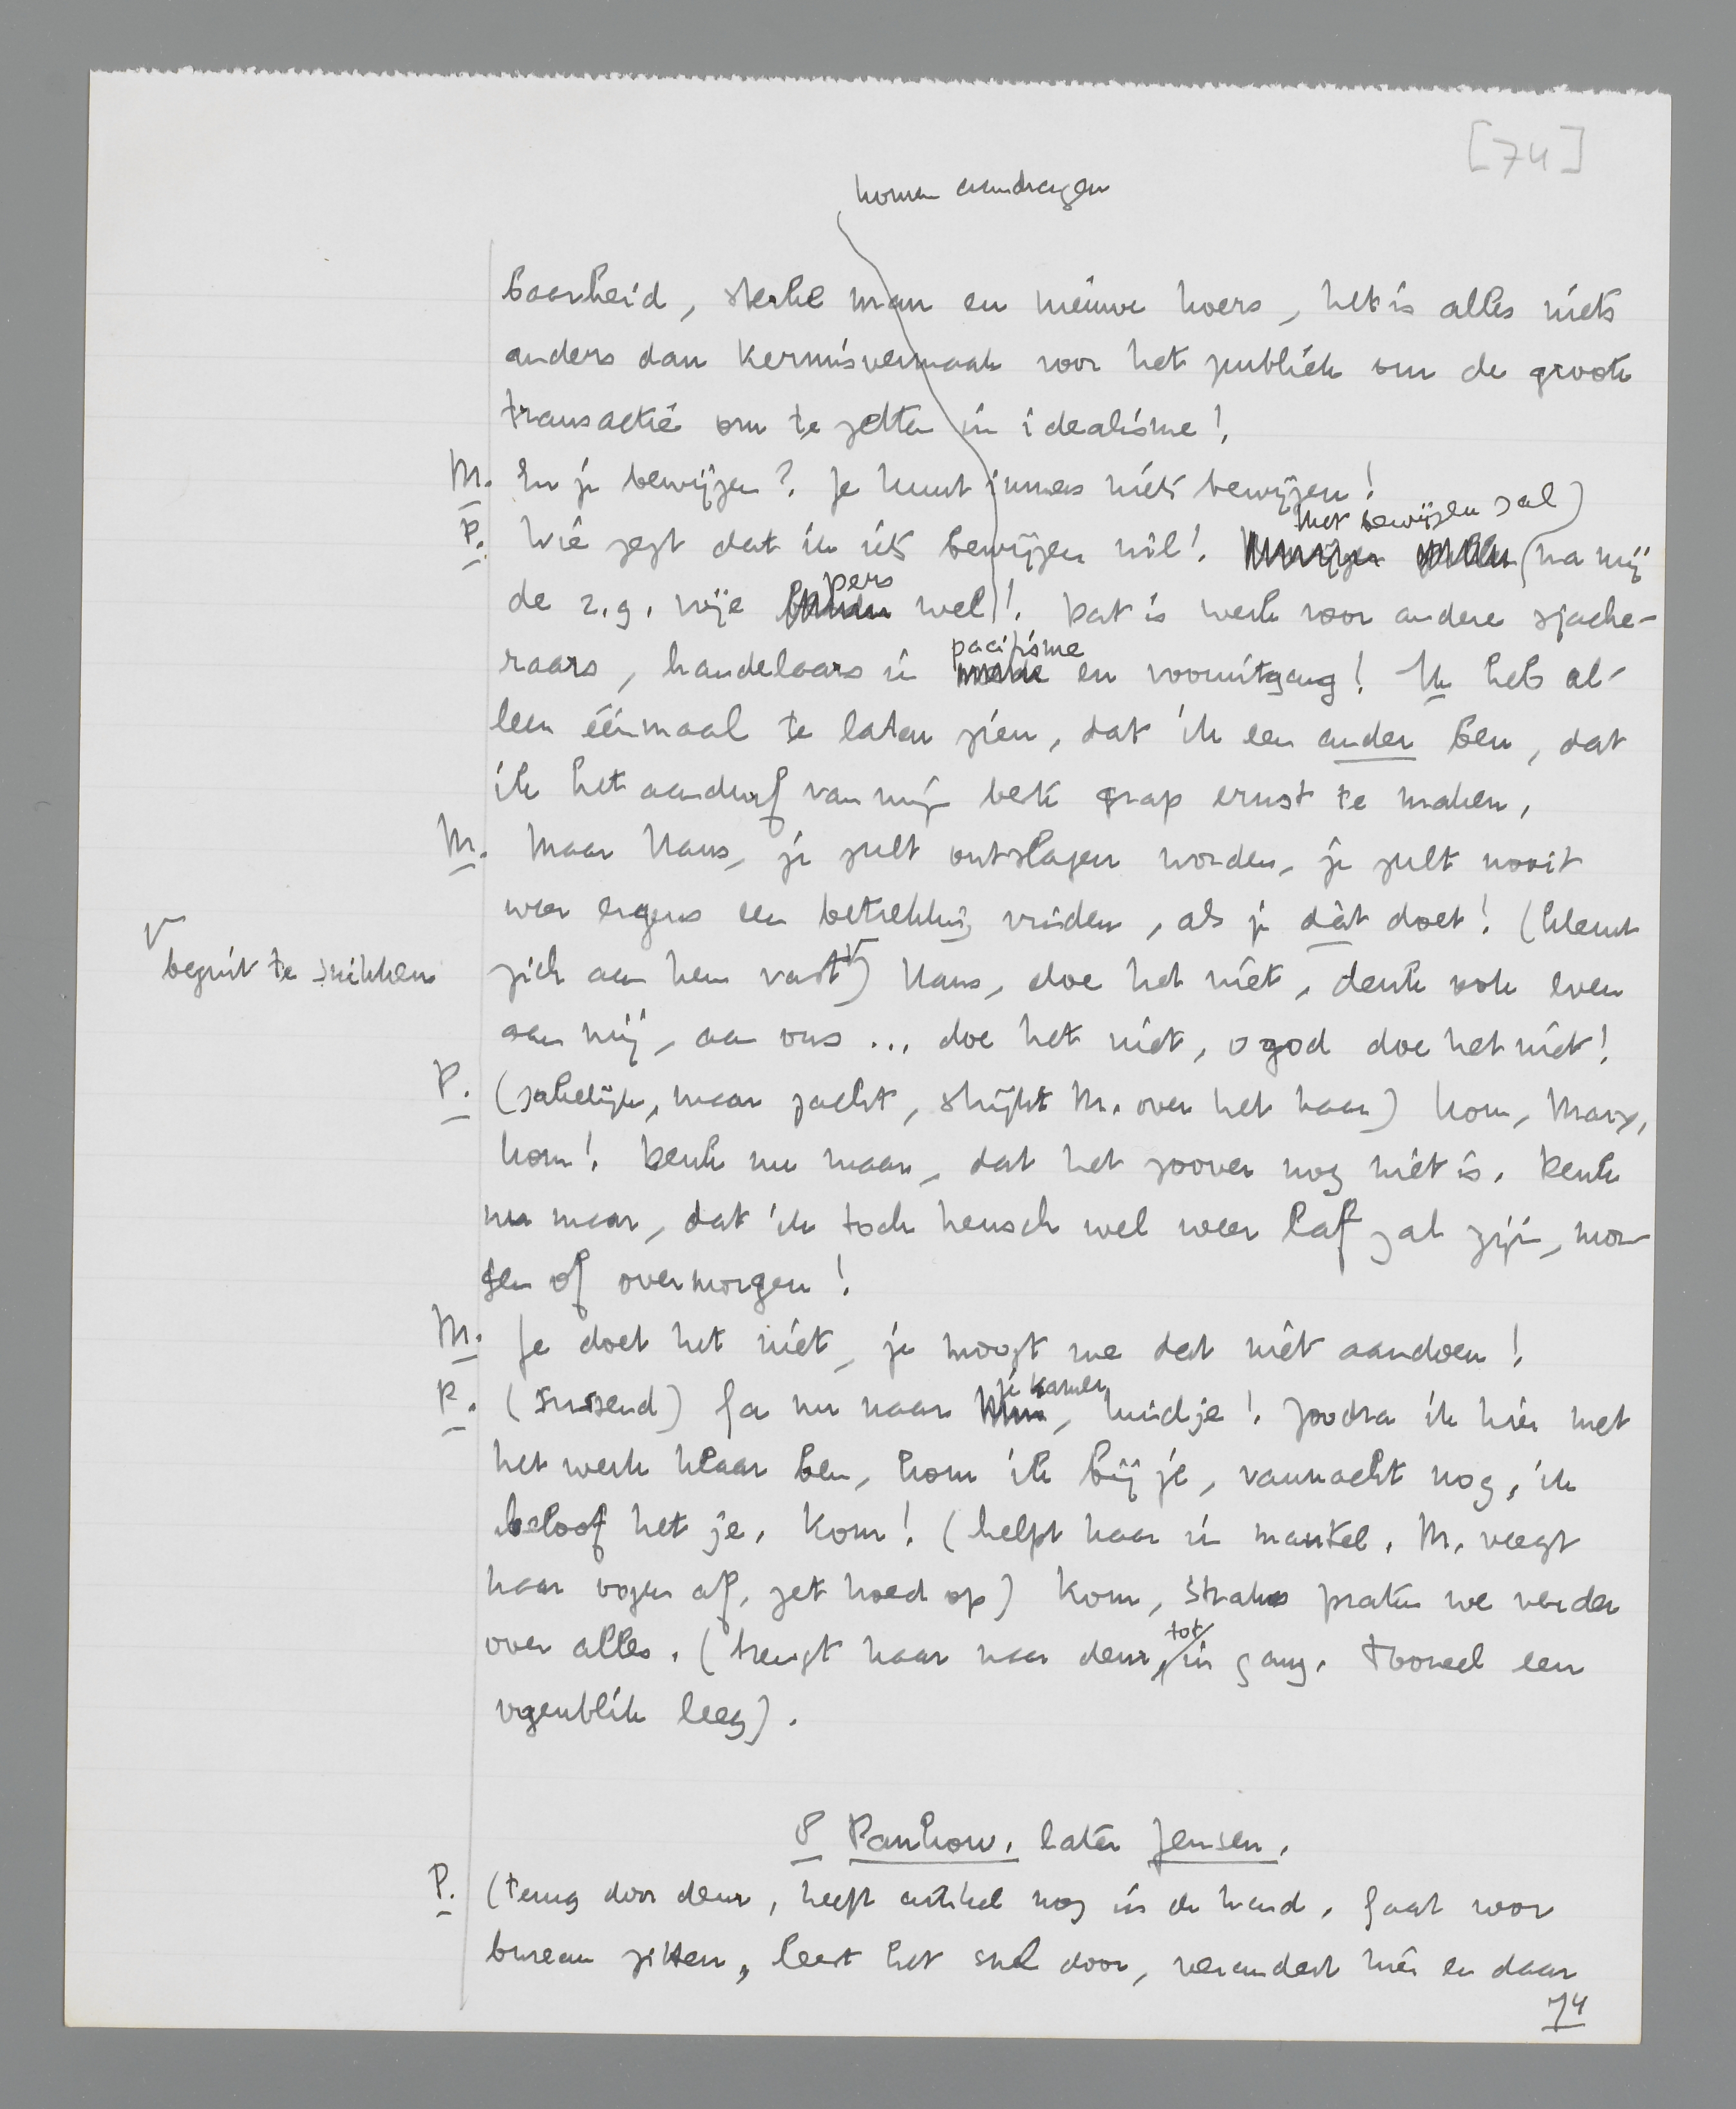 [74]
komen aandragen
baarheid, sterke man en nieuwe koers, het is alles niets
anders dan kermisvermaak voor het publiek om de groote
transactie om te zetten in idealisme!
M. En je bewijzen? Je kunt immers niets bewijzen!
het bewijzen zal)
P. Wie zegt dat ik iets bewijzen wil! (na mij
pers
de z.g. vrije wel)! Dat is werk voor andere sjache-
pacifisme
raars, handelaars in en vooruitgang! Ik heb al-
leen éénmaal te laten zien, dat ik een ander ben, dat
ik het aandurf van mijn beste grap ernst te maken.
M. Maar Hans, je zult ontslagen worden, je zult nooit
weer ergens een betrekking vinden, als je dàt doet! (klemt
begint te snikken
zich aan hem vast) Hans, doe het niet, denk ook even
aan mij, aan ons ... doe het niet, o god doe het niet!
P. (zakelijk, maar zacht, strijkt M. over het haar) Kom, Mary,
kom! Denk nu maar, dat het zoover nog niet is. Denk
nu maar, dat ik toch heusch wel weer laf zal zijn, mor-
gen of overmorgen!
M. Je doet het niet, je moogt me dat niet aandoen!
je kamer
P. (sussend) Ga nu naar , kindje! Zoodra ik hier met
het werk klaar ben, kom ik bij je, vannacht nog, ik
beloof het je. Kom! (helpt haar in mantel. M. veegt
haar oogen af, zet hoed op) Kom, straks praten we verder
tot
over alles. (brengt haar naar deur, in gang. Tooneel een
oogenblik leeg).
P Pankow, later Jensen.
P. (terug door deur, heeft artikel nog in de hand. Gaat voor
bureau zitten, leest het snel door, verandert hier en daar
74